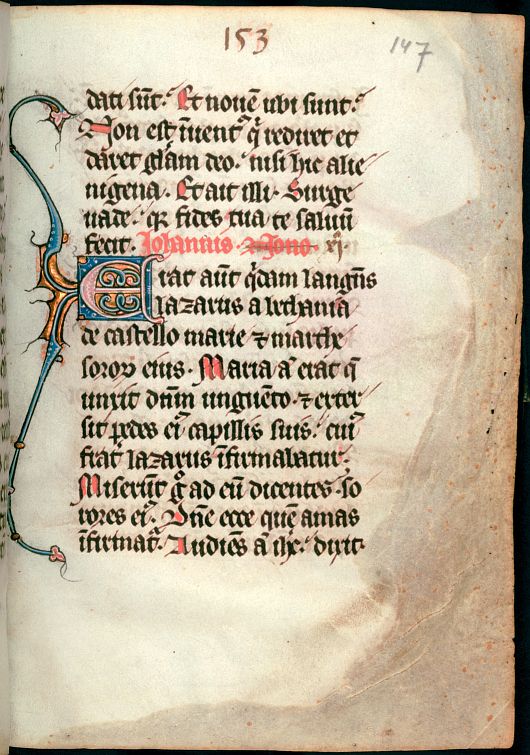 153
147
dati sūt. Et nouē ubi sunt.
Non est īuent᷒ q̇ rediret et
daret gl̄am deo. nisi hic alie
nigena. Et ait illi. Surge
uade. qꝛ fides tua te saluū
fecit. Johannis. xj.
Erat aūt q̇dam langūs
lazarus a bethania
de castello marie ⁊ marthe
soroꝝ eius. Maria ā erat q̄
unxit dn̄m unguēto. ⁊ exter
sit pedes ei᷒ capillis suis. cui᷒
frat̄ lazarus īfirmabatur.
Miserūt g̊ ad eū dicentes so
rores ei᷒. Dn̄e ecce quē amas
īfirmat᷑. Audiēs ā ih̄c. dixit.